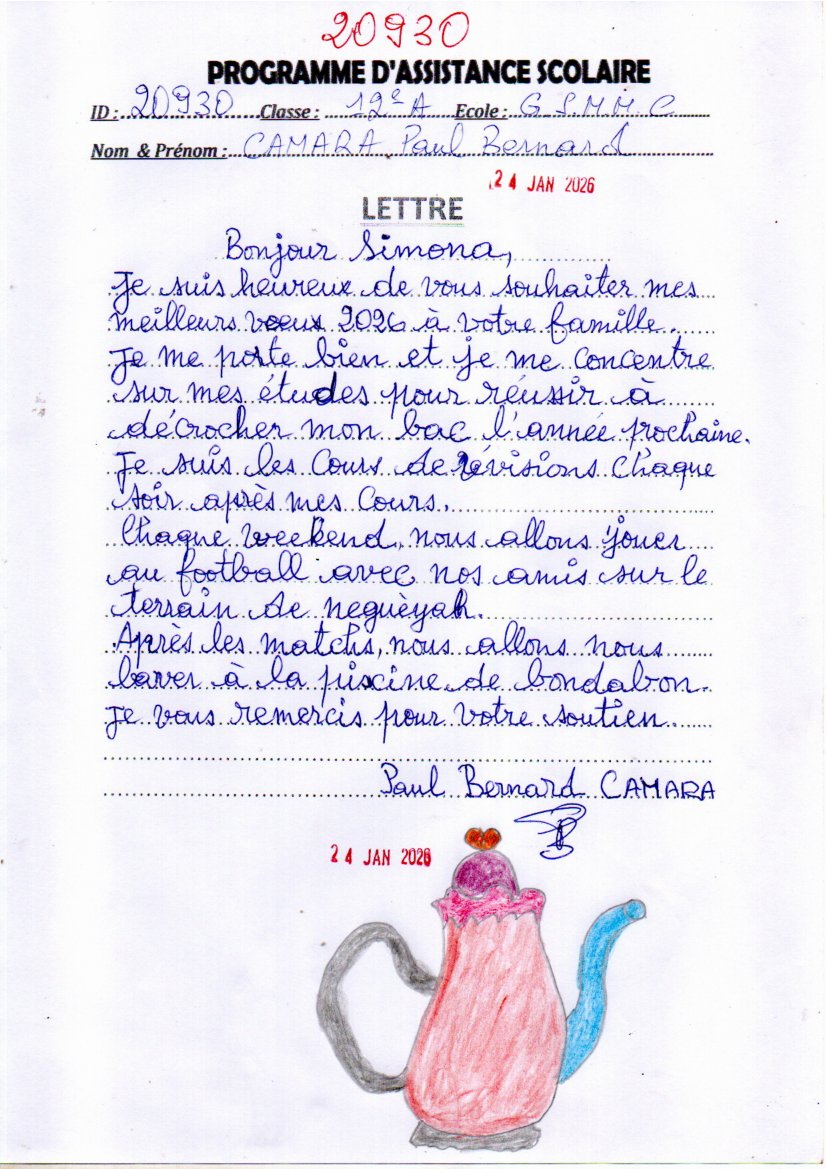 20930
PROGRAMME D'ASSISTANCE SCOLAIRE
ID : 20930 Classe : 12è A Ecole : G S.M.M.C
Nom & Prénom : CAMARA Paul Bernard
24 JAN 2026
LETTRE
Bonjour Simona,
Je suis heureux de vous souhaiter mes
meilleurs voeux 2026 à votre famille.
Je me porte bien et je me concentre
sur mes études pour réussir à
décrocher mon bac l'année prochaine.
Je suis les Cours de révisions chaque
soir après mes Cours.
Chaque weekend, nous allons jouer
au football avec nos amis sur le
terrain de neguèyah.
Après les matchs, nous allons nous
laver à la piscine de bondabon.
Je vous remercis pour votre soutien.
Paul Bernard CAMARA
24 JAN 2026